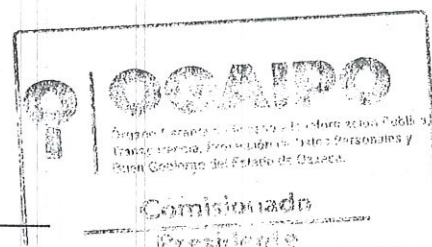 OGAIPO
Órgano Garante de Acceso a la Información Pública,
Transparencia, Protección de Datos Personales y
Buen Gobierno del Estado de Oaxaca.
Comisionado
Presidente